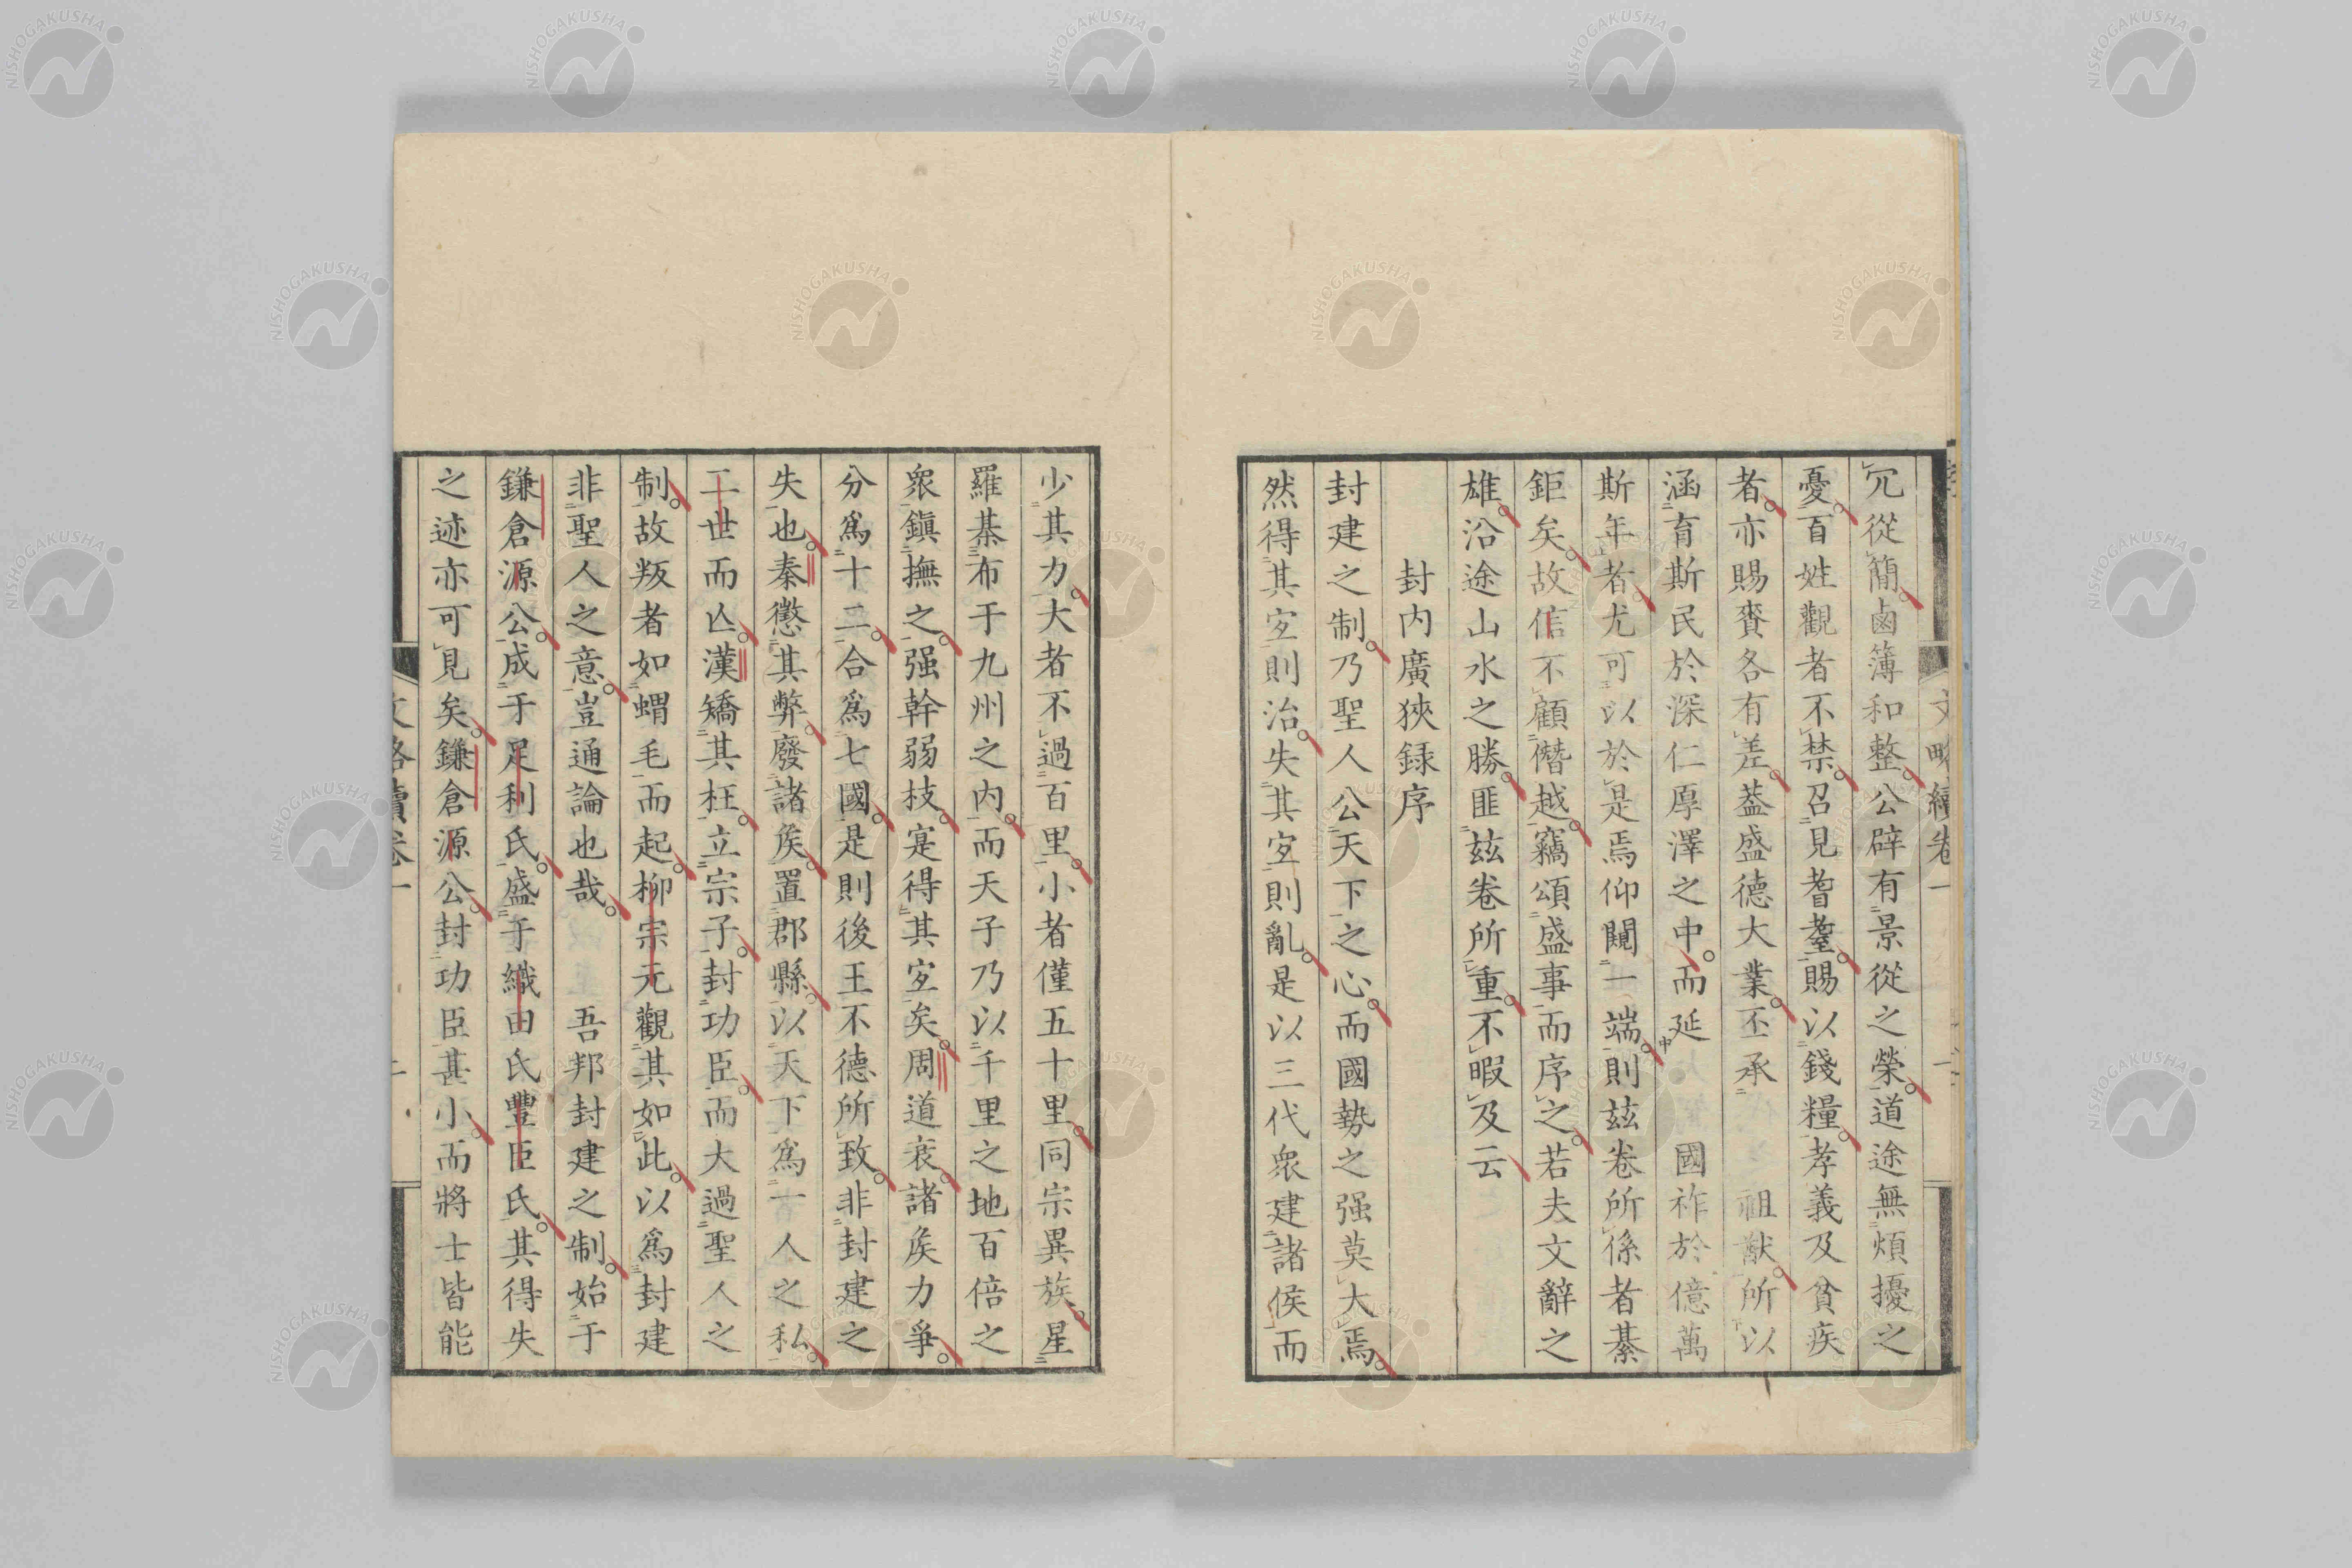 冗從簡鹵簿和整公辟有景從之榮道途無煩擾之
憂百姓觀者不禁召見耆耋賜以錢糧孝義及貧疾
者亦賜賚各有差葢盛德大業丕承　祖猷所以
涵育斯民於深仁厚澤之中而延　國祚於億萬
斯年者尤可以於是焉仰闚一端則玆卷所係者綦
鉅矣故信不顧僭越竊頌盛事而序之若夫文辭之
雄沿途山水之勝匪玆卷所重不暇及云
封内廣狹録序
封建之制乃聖人公天下之心而國勢之强莫大焉
然得其宐則治失其宐則亂是以三代衆建諸侯而
少其力大者不過百里小者僅五十里同宗異族星
羅棊布于九州之内而天子乃以千里之地百倍之
衆鎭撫之强幹弱枝寔得其宐矣周道衰諸矦力爭
分爲十二合爲七國是則後王不德所致非封建之
失也秦懲其弊廢諸矦置郡縣以天下爲一人之私
二世而亾漢矯其枉立宗子封功臣而大過聖人之
制故叛者如蝟毛而起柳宗元觀其如此以爲封建
非聖人之意豈通論也哉　吾邦封建之制始于
鎌倉源公成于足利氏盛于織田氏豐臣氏其得失
之迹亦可見矣鎌倉源公封功臣甚小而將士皆能